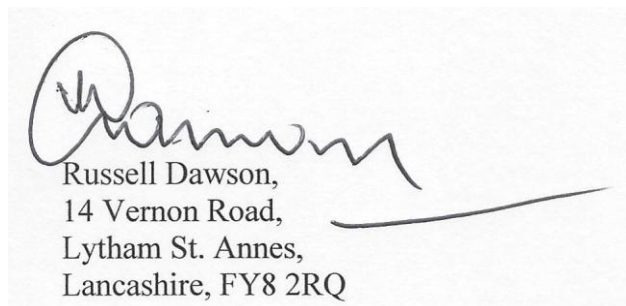 Russell Dawson,
14 Vernon Road,
Lytham St. Annes,
Lancashire, FY8 2RQ